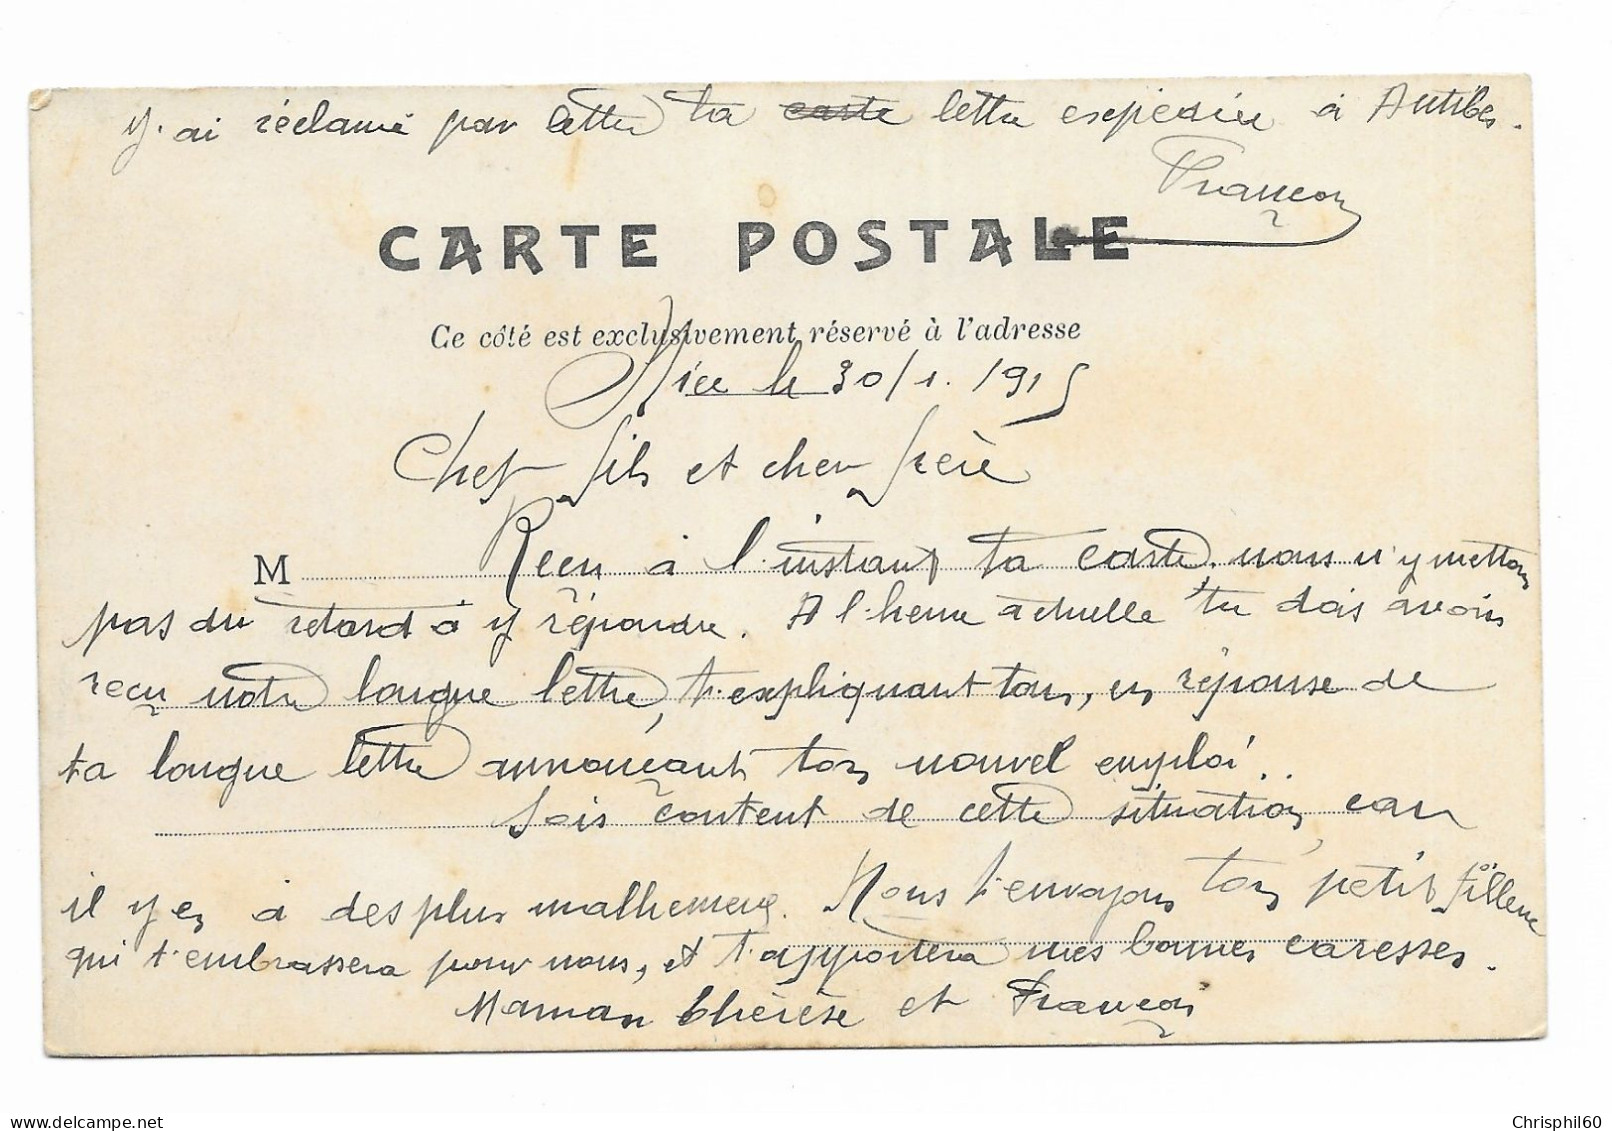 J'ai réclamé par lettre ta carte lettre expédiée à Antibes.
François
CARTE POSTALE
Ce côté est exclusivement réservé à l'adresse
Nice le 30/1. 1915
Cher fils et cher frère
M Recu à l'instant ta carte, nous n'y mettons
pas du retard à y répondre. A l'heure actuelle tu dois avoir
reçu notre longue lettre, t'expliquant tout, en réponse de
ta longue lettre annonçant ton nouvel emploi..
Sois content de cette situation, car
il y en à des plus malheureux. Nous t'envoyons ton petit filleul
qui t'embrassera pour nous, et t'apportera mes bonnes caresses.
Maman thérèse et François
Chrisphil60